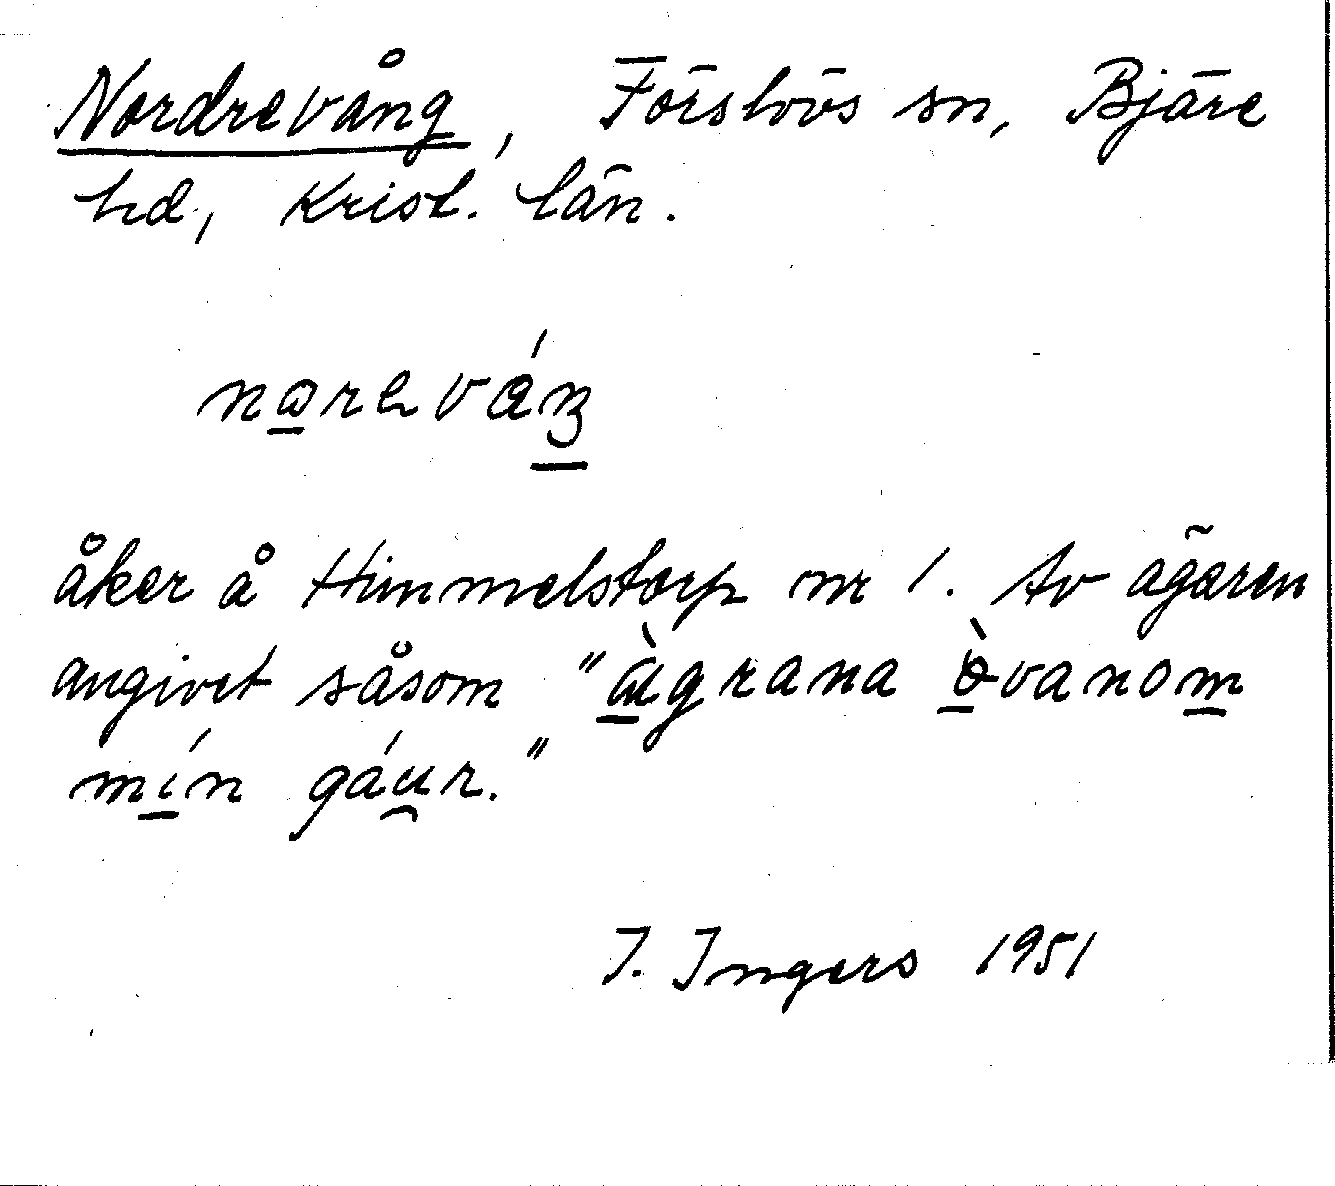 Nordrevång, Förslövs sn, Bjäre
hd, Krist. län.
nɷreváŋ
åker å Himmelstorp nr 1. Av ägaren
angivet såsom "àgrana òvanom
mín gáur."
I. Ingers 1951